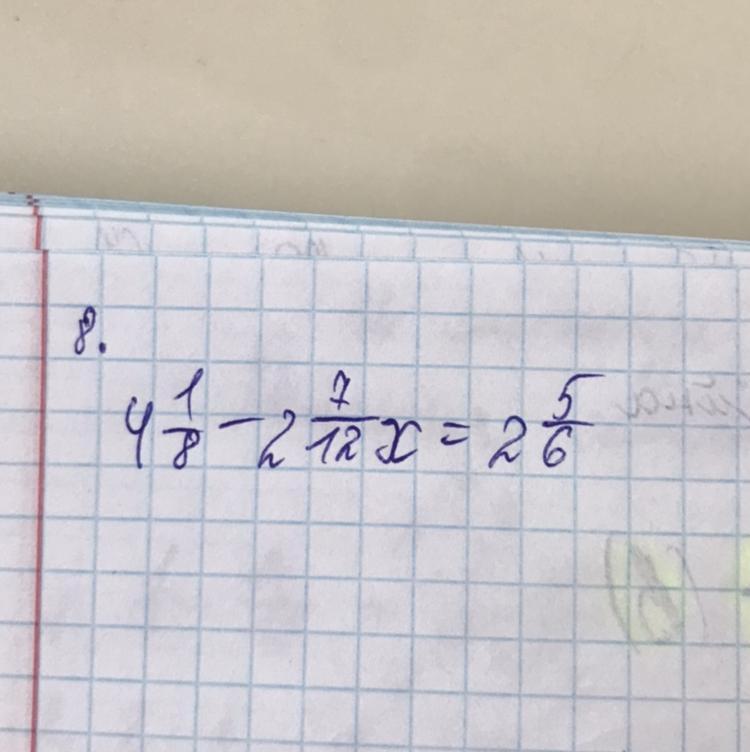 8.
4 1/8 - 2 7/12 x = 2 5/6